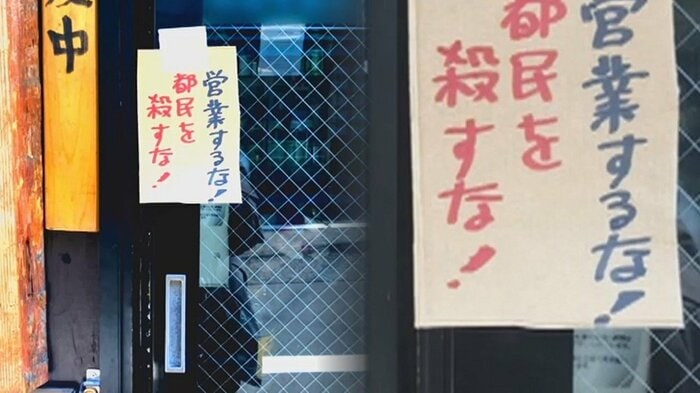 中
営業するな!
都民を
殺すな!
営業するな!
都民を
殺すな!